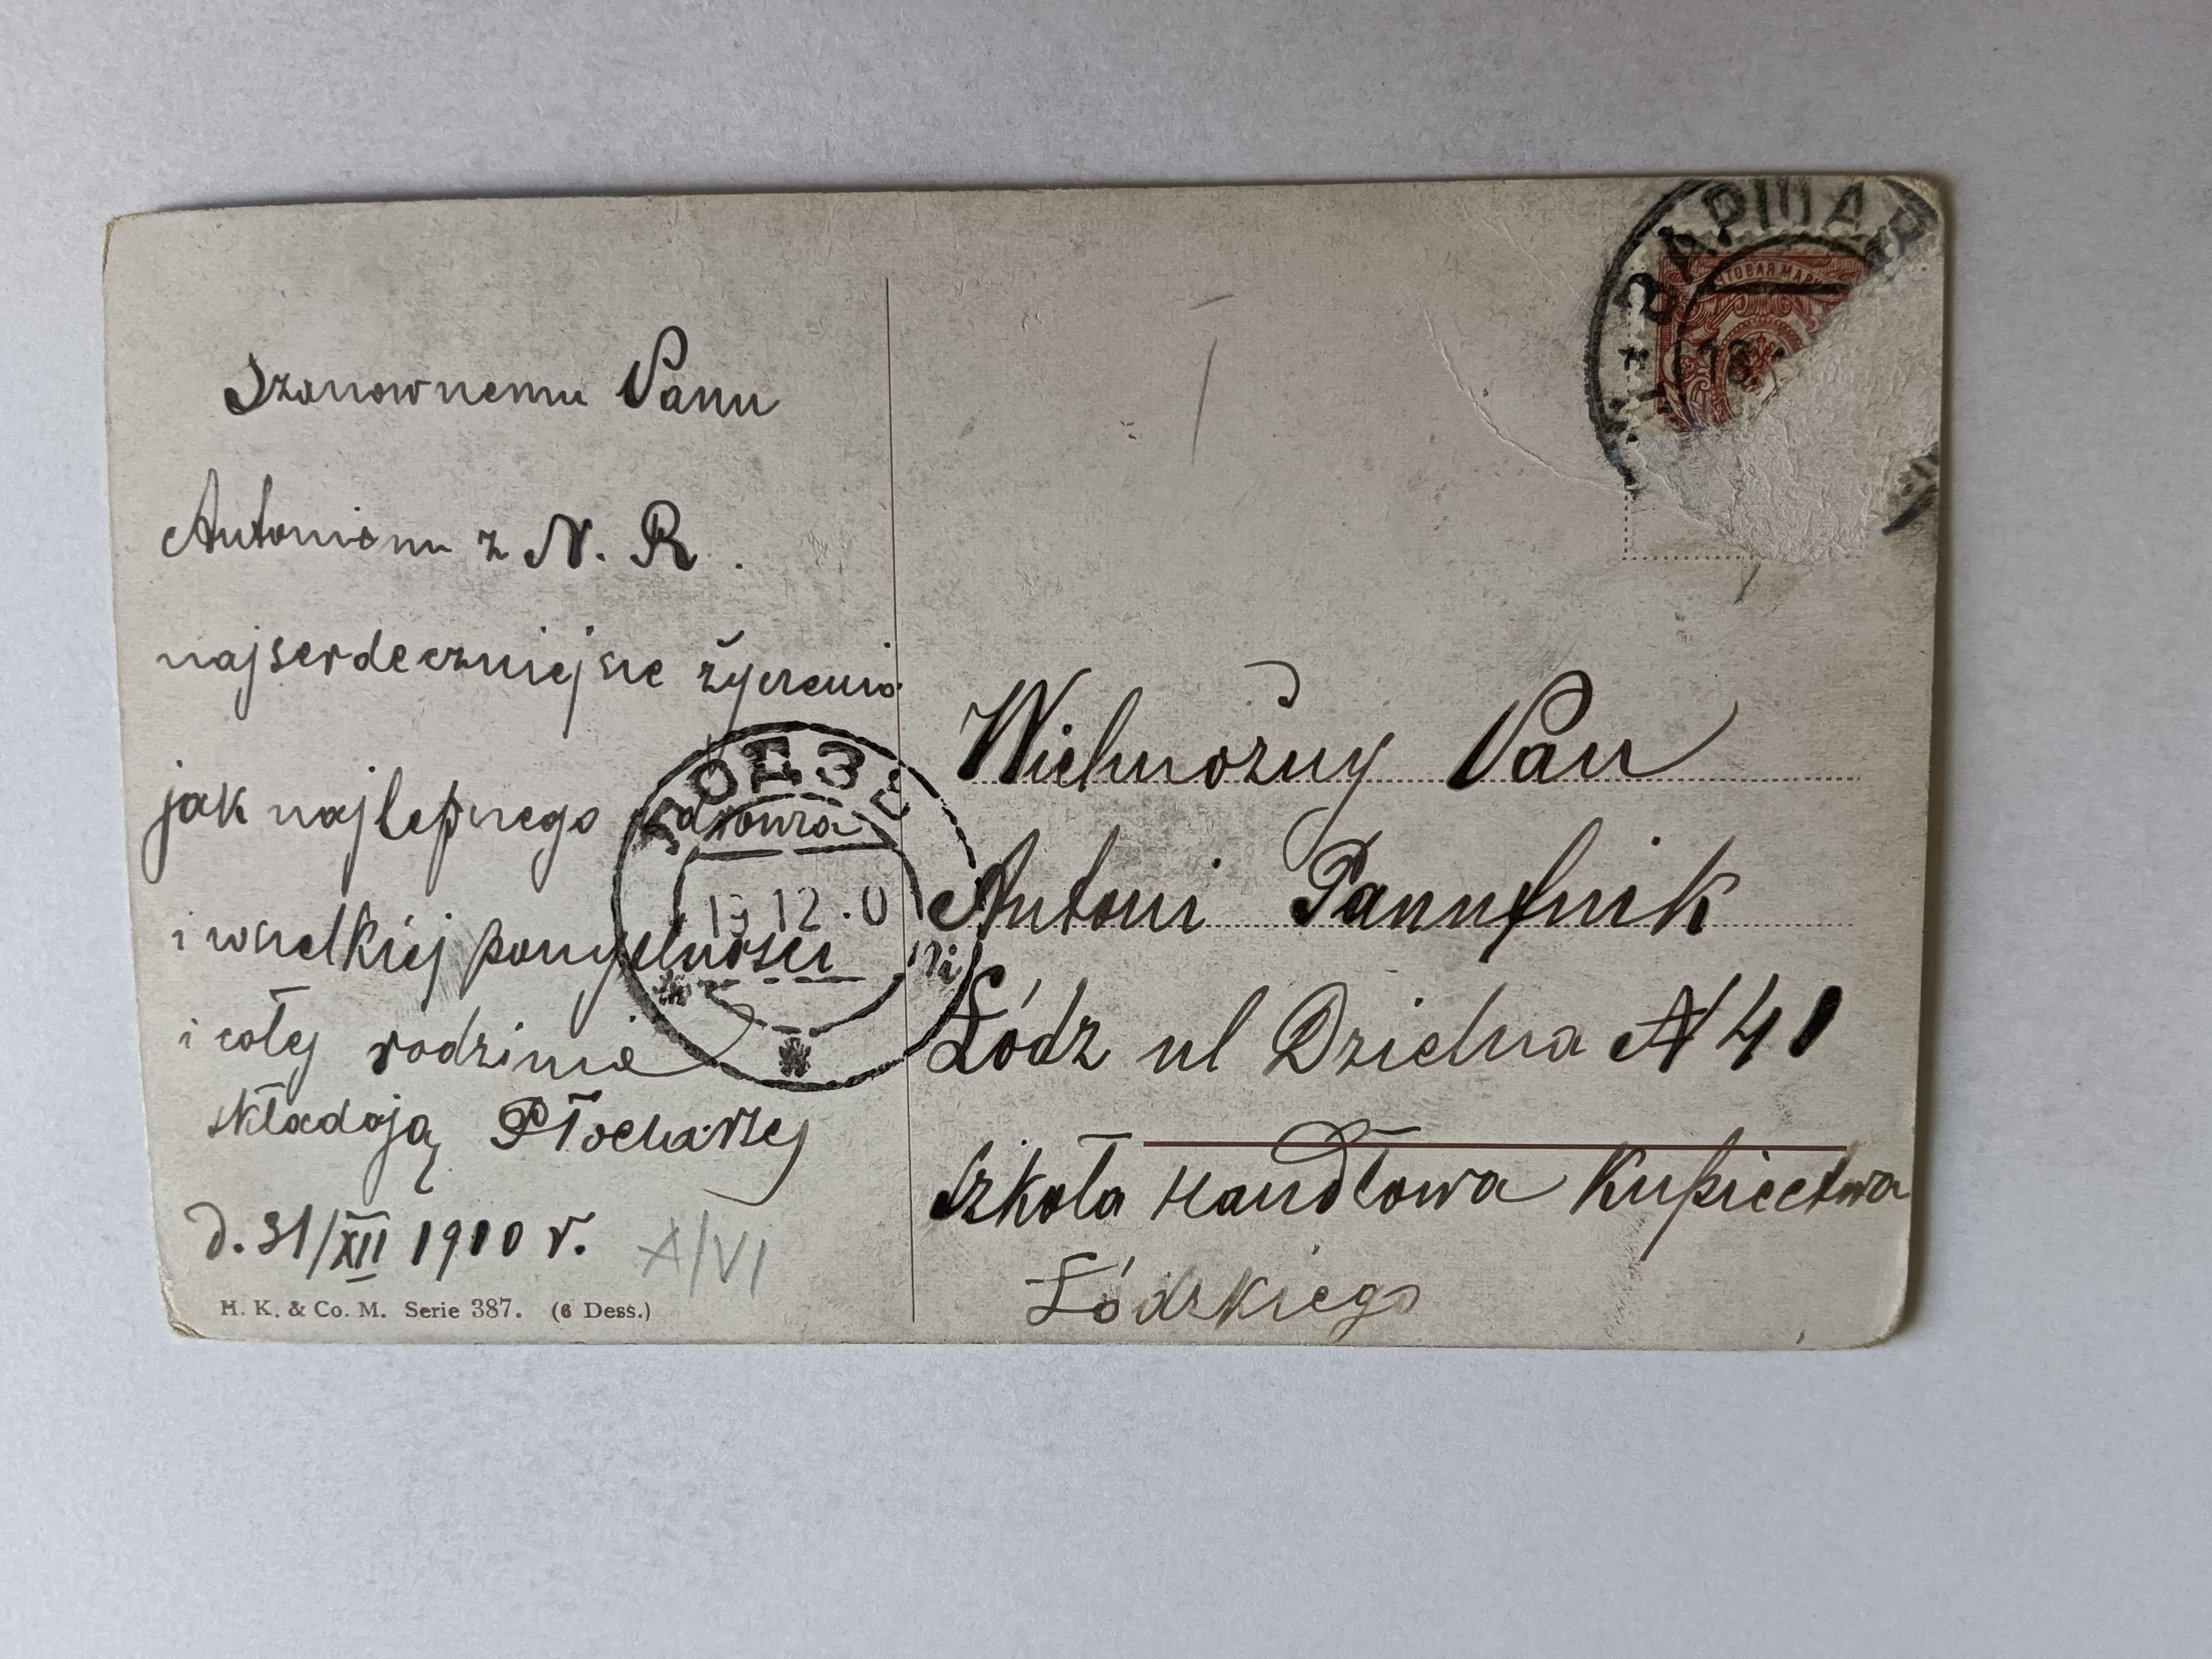 Szanownemu Panu
Antoniemu z N. R.
najserdeczniejsze życzenia
jak najlepszego zdrowia
i wszelkiej pomyślności
i całej rodzinie
składają Płocharzy
d. 31/XII 1910 r.
X/VI
H. K. & Co. M. Serie 387. (6 Dess.)
ЛОДЗЬ
12
ВАРШАВ
ТОВАЯ МАР
Wielmożny Pan
Antoni Panufnik
Łódz ul Dzielna N 41
Szkoła Handlowa Kupiectwa
Łódzkiego